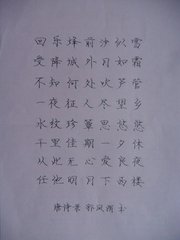 回乐烽前沙似雪
受降城外月如霜
不知何处吹芦管
一夜征人尽望乡
水纹珍簟思悠悠
千里佳期一夕休
从此无心爱良夜
任他明月下西楼
唐诗